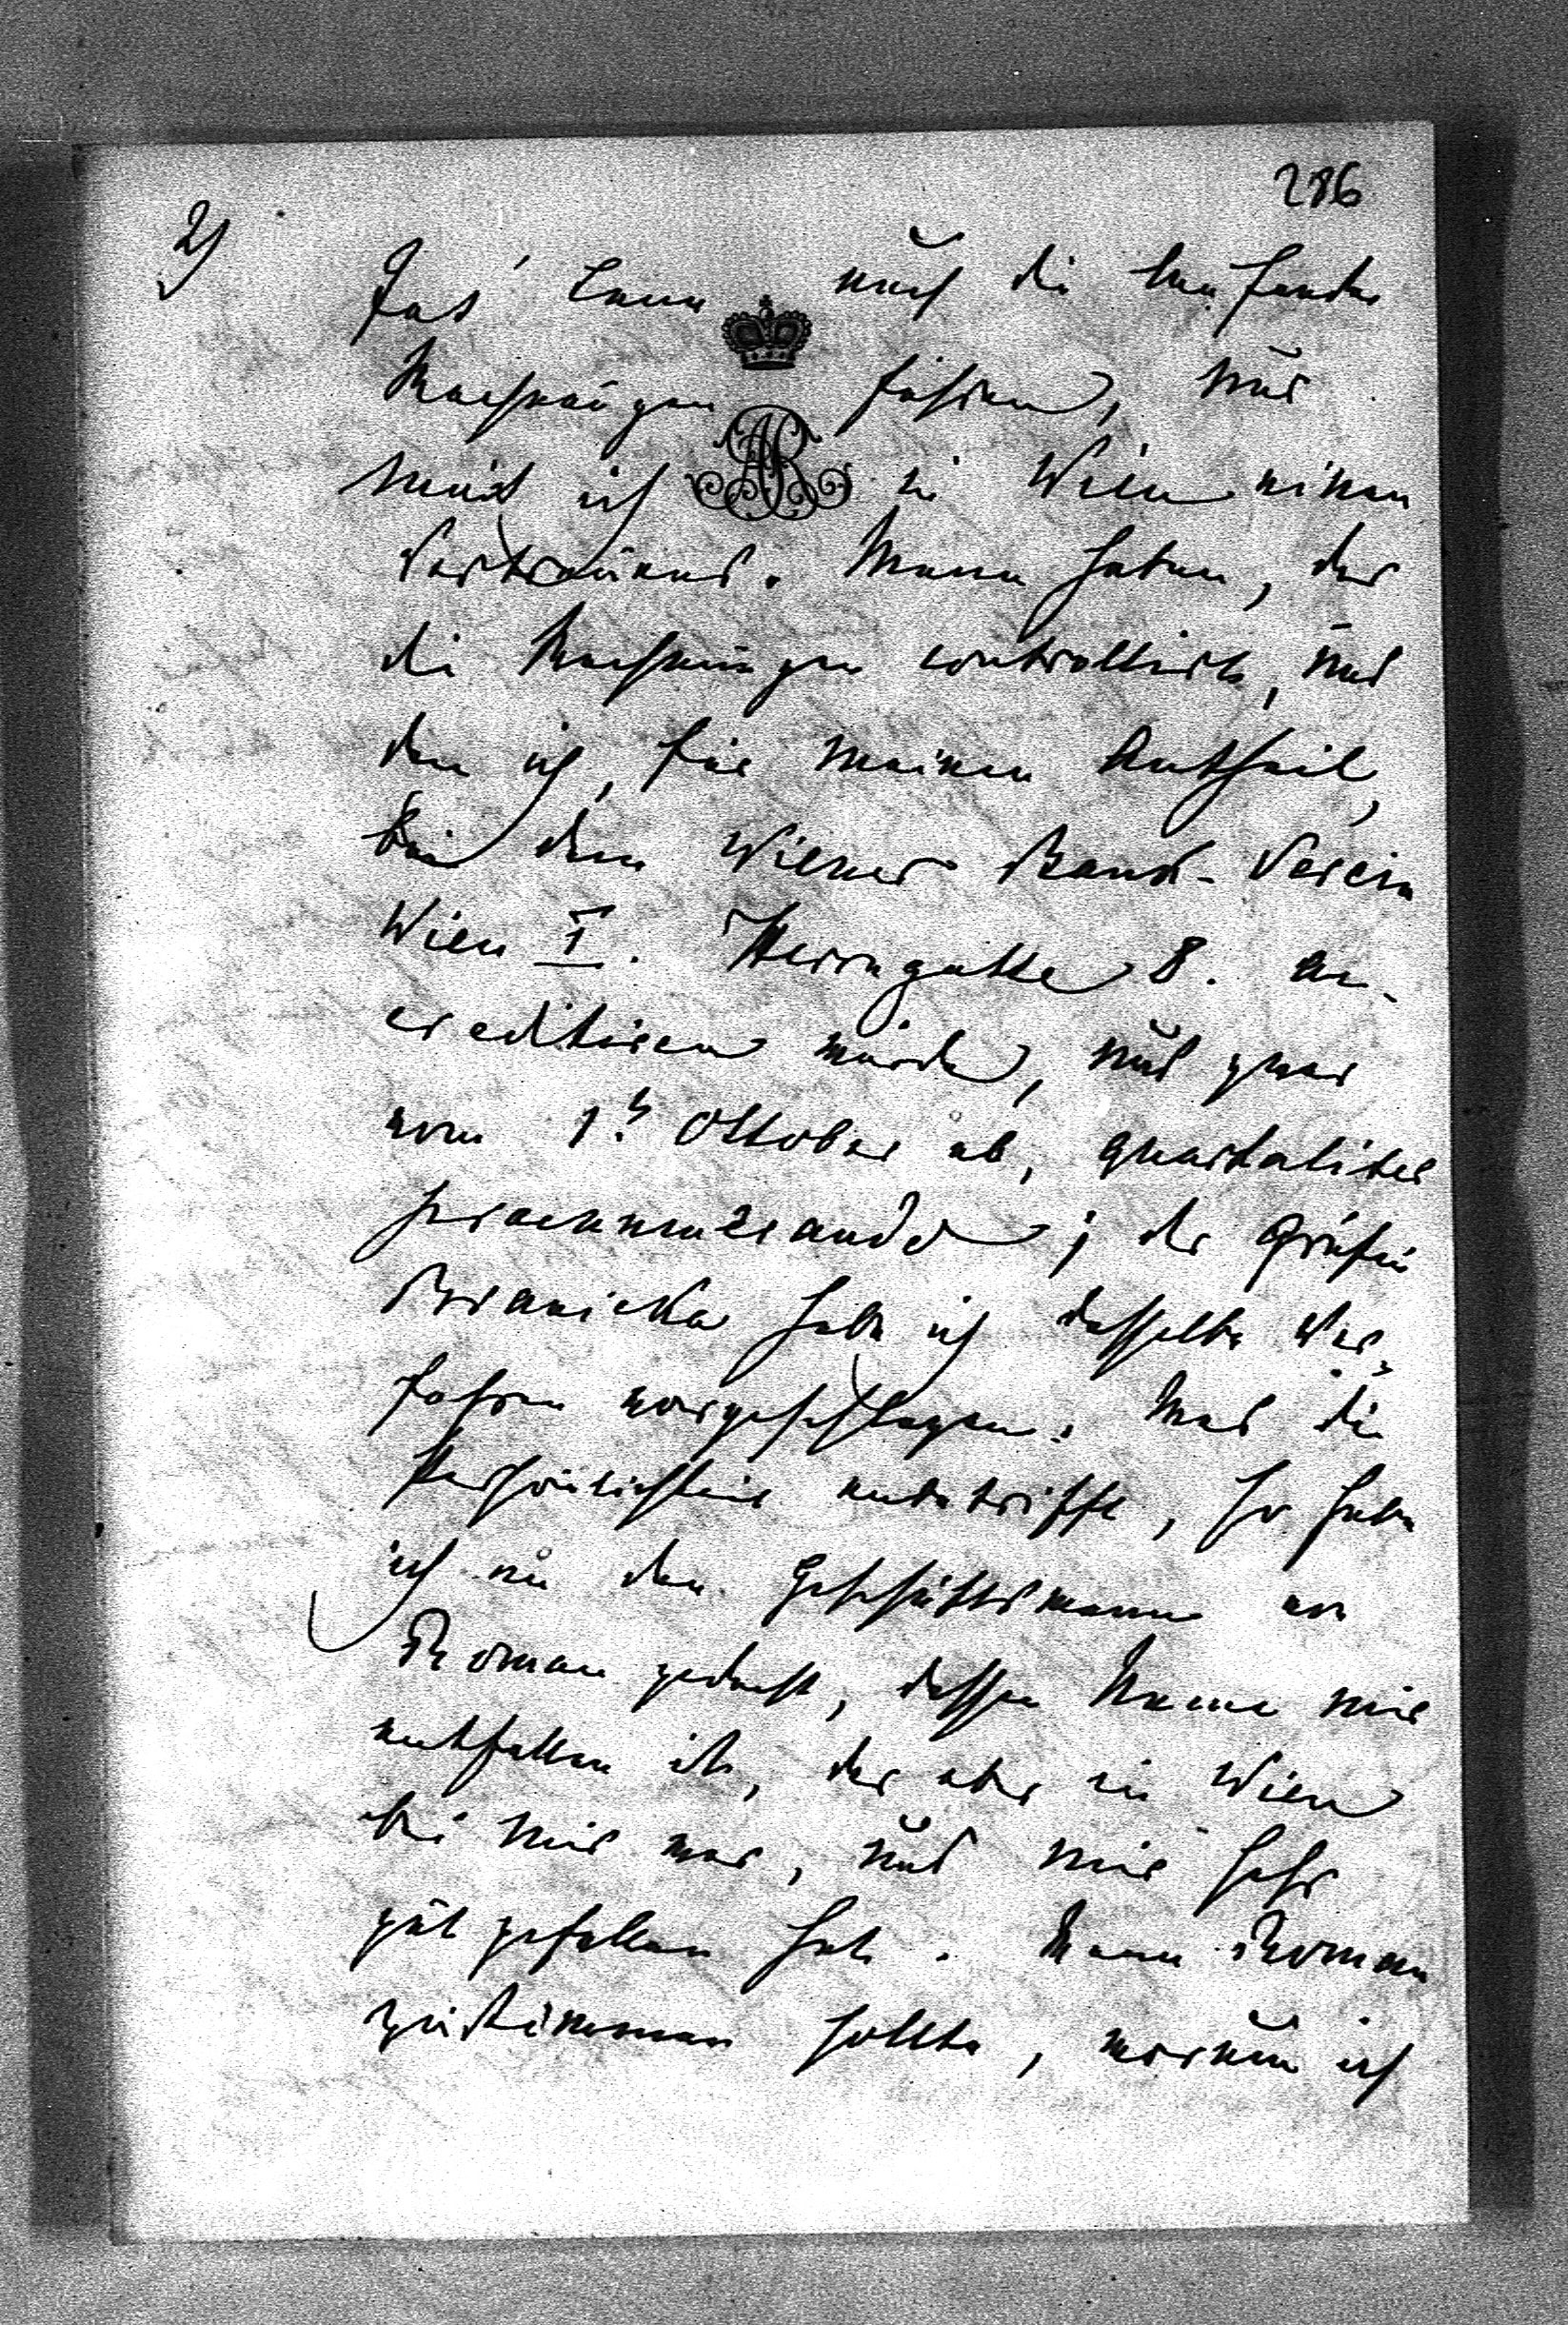 286
2)
hat, kann auch die laufenden
Rechnungen führen, nur
muß ich in Wien einen
Vertrauens-Mann haben, der
die Rechnungen controllirt, und
den ich, für meinen Antheil,
bei dem Wiener Bank-Verein
Wien I. Herrngasse 8. ac-
creditiren würde, und zwar
vom 1t Oktober ab, quartaliter
praenumerando; der Gräfin
Branicka habe ich dasselbe Ver-
fahren vorgeschlagen. Was die
Persönlichkeit anbetrifft, so habe
ich an den Geschäftsmann von
Roman gedacht, dessen Name mir
entfallen ist, der aber in Wien
bei mir war, und mir sehr
gut gefallen hat. Wenn Roman
zustimmen sollte, worum ich